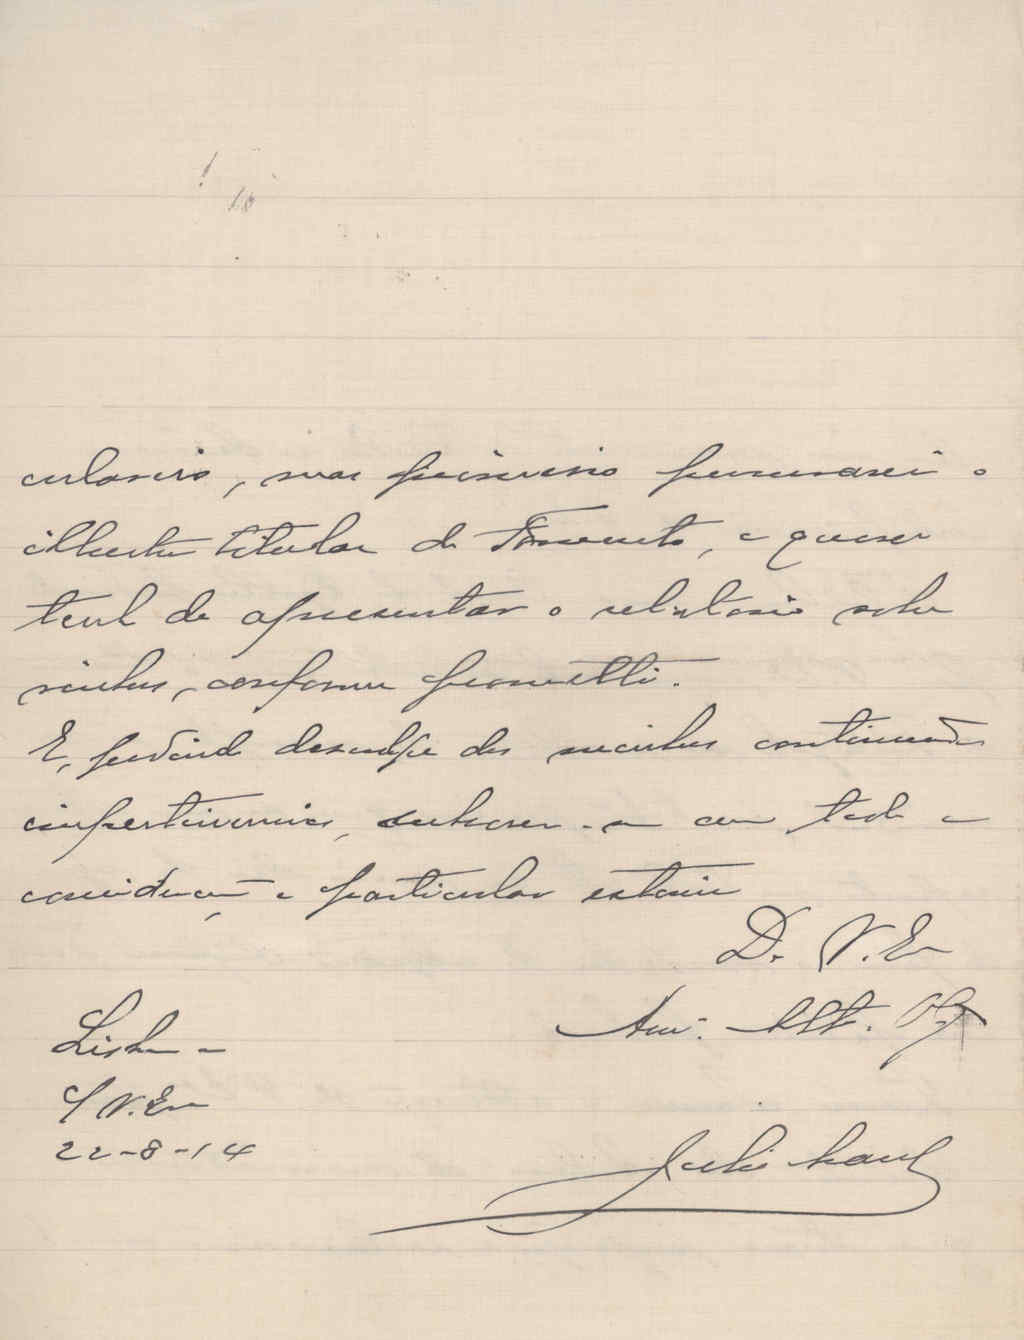 , mas primeiro procurarei o
illustre titular do Fomento, a quem
terei de apresentar o relatorio sobre
vinhos, conforme prometti.
E, pedindo desculpa das minhas continuadas
impertinencias, subscrevo-me com toda a
consideração e particular estima
De V. Ex
Am. Att. Obg
Lisboa
S/ V. Ex
22-8-14
Julio